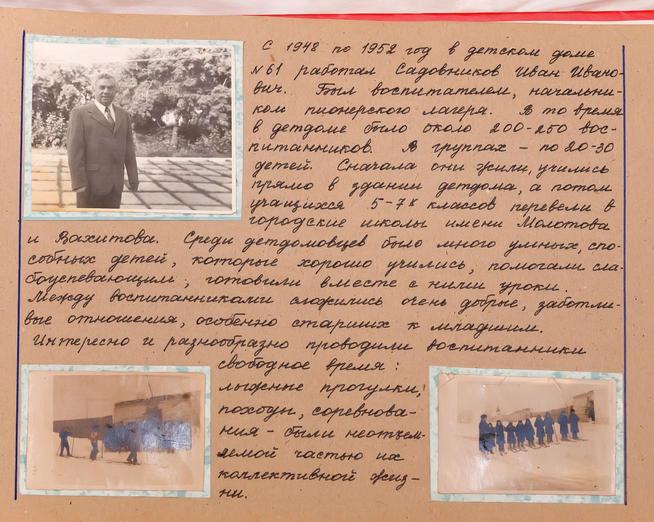 С 1948 по 1952 год в детском доме
№61 работал Садовников Иван Ивано-
вич. Был воспитателем, начальни-
ком пионерского лагеря. В то время
в детдоме было около 200-250 вос-
питанников. В группах - по 20-30
детей. Сначала они жили, учились
прямо в здании детдома, а потом
учащихся 5-7х классов перевели в
городские школы имени Молотова
и Вахитова. Среди детдомовцев было много умных, спо-
собных детей, которые хорошо учились, помогали сла-
боуспевающим, готовили вместе с ними уроки.
Между воспитанниками сложились очень добрые, заботли-
вые отношения, особенно старших к младшим.
Интересно и разнообразно проводили воспитанники
свободное время:
лыжные прогулки,
походы, соревнова-
ния - были неотъем-
лемой частью их
коллективной жиз-
ни.